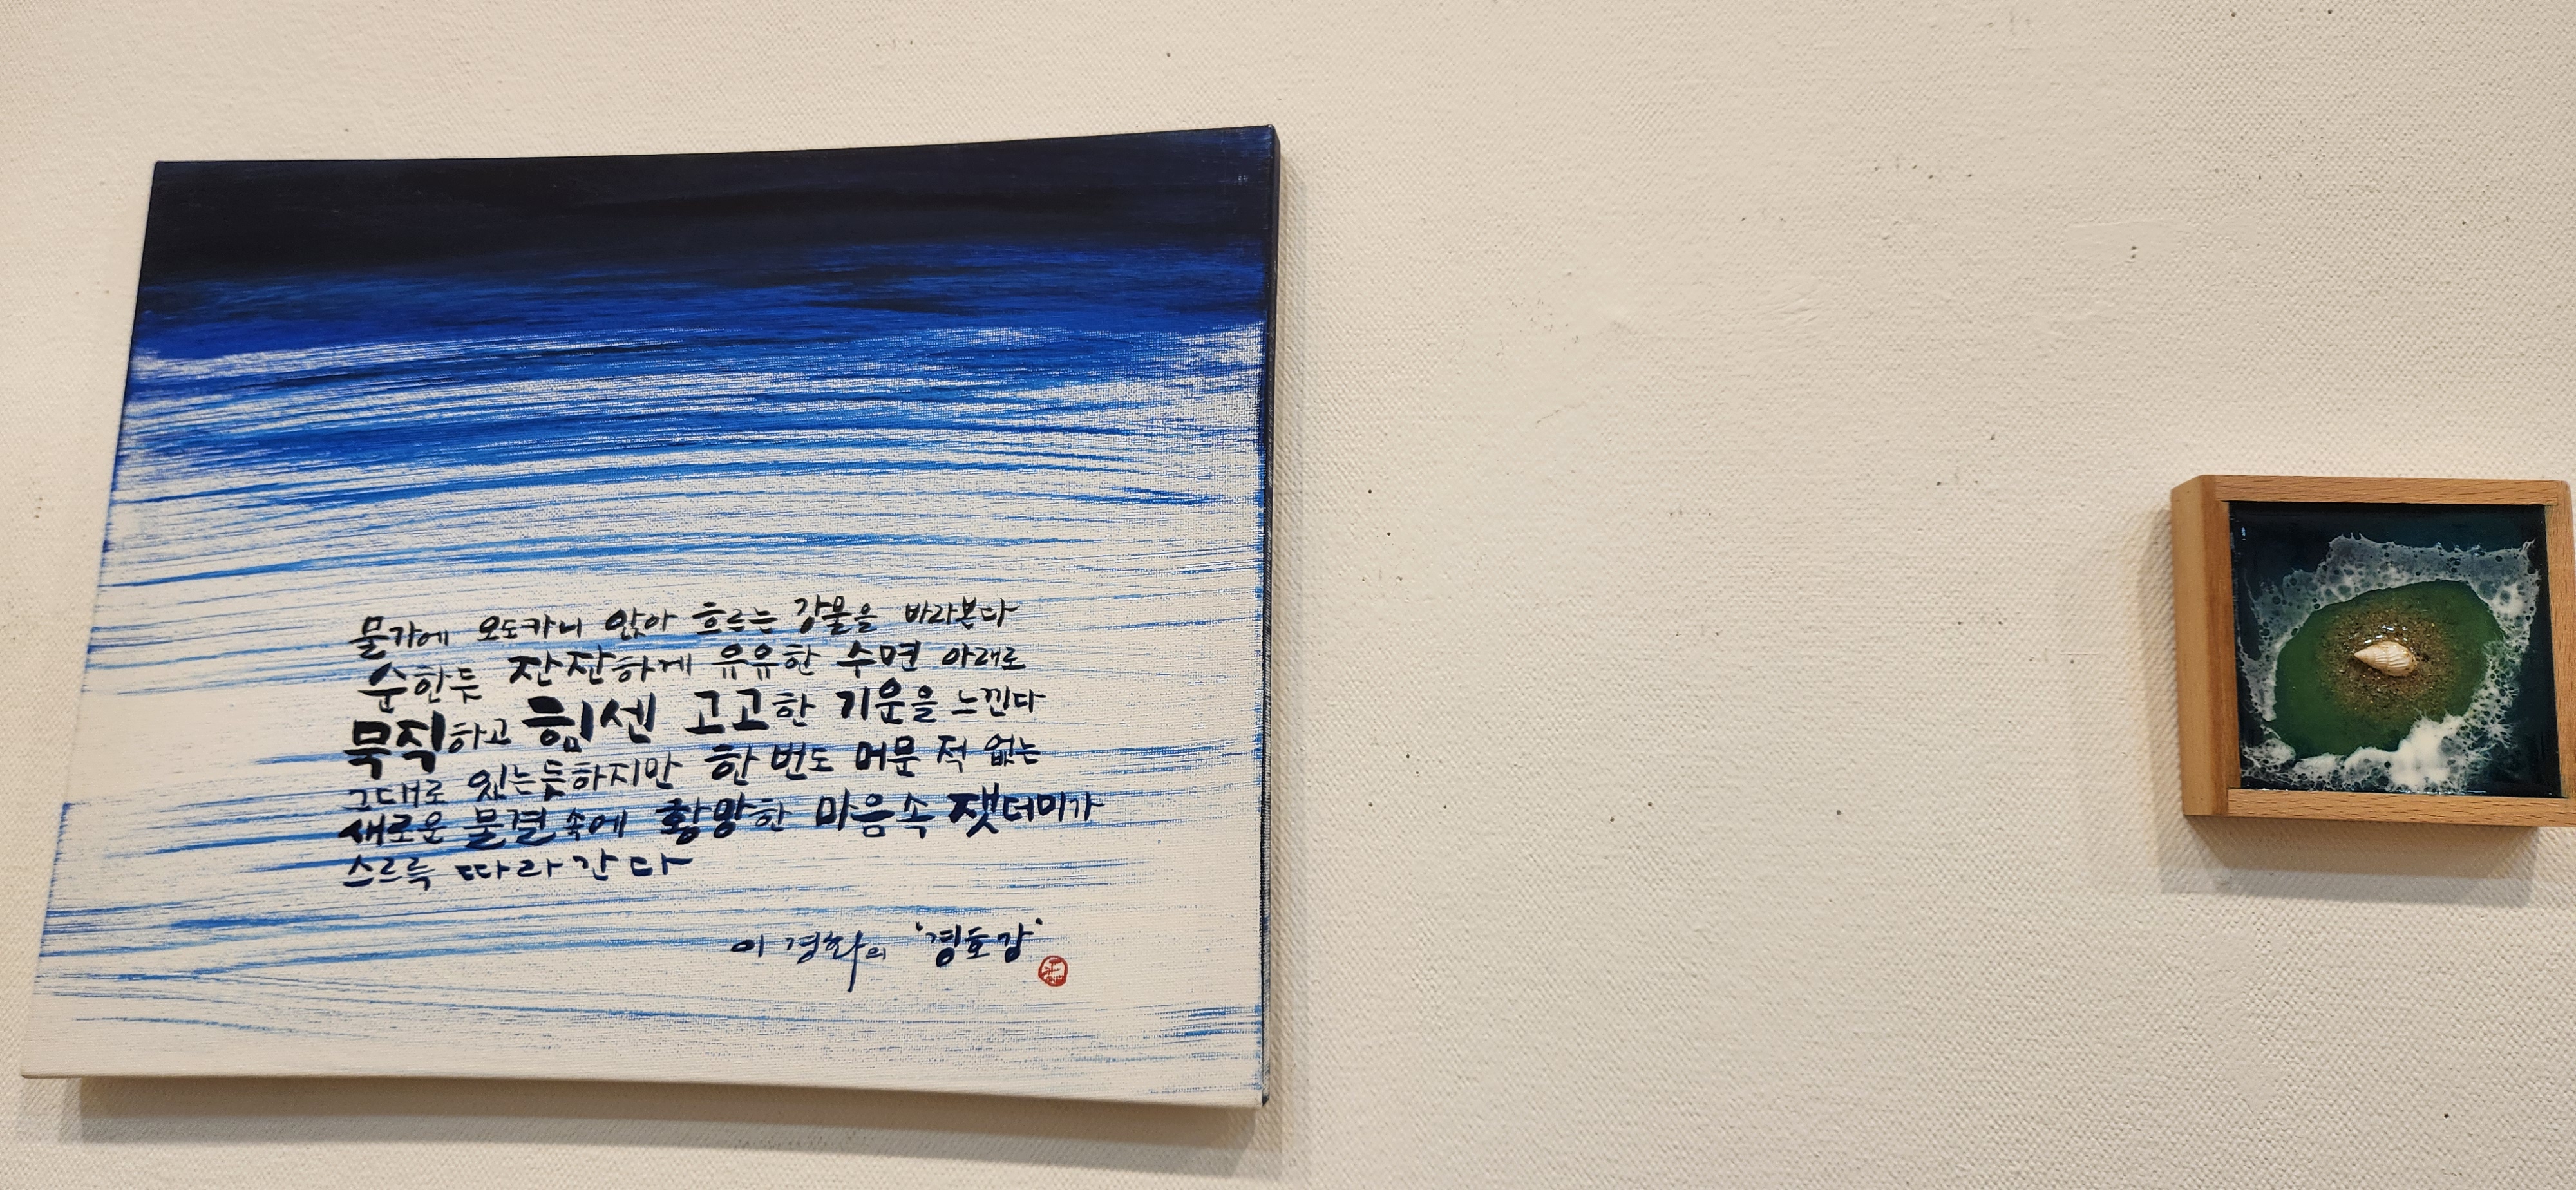 물가에 오도카니 앉아 흐르는 강물을 바라본다
순한듯 잔잔하게 유유한 수면 아래로
묵직하고 힘센 고고한 기운을 느낀다
그대로 있는듯하지만 한 번도 머문 적 없는
새로운 물결 속에 황망한 마음속 잿더미가
스르륵 따라간다
이경화의 '경호강'